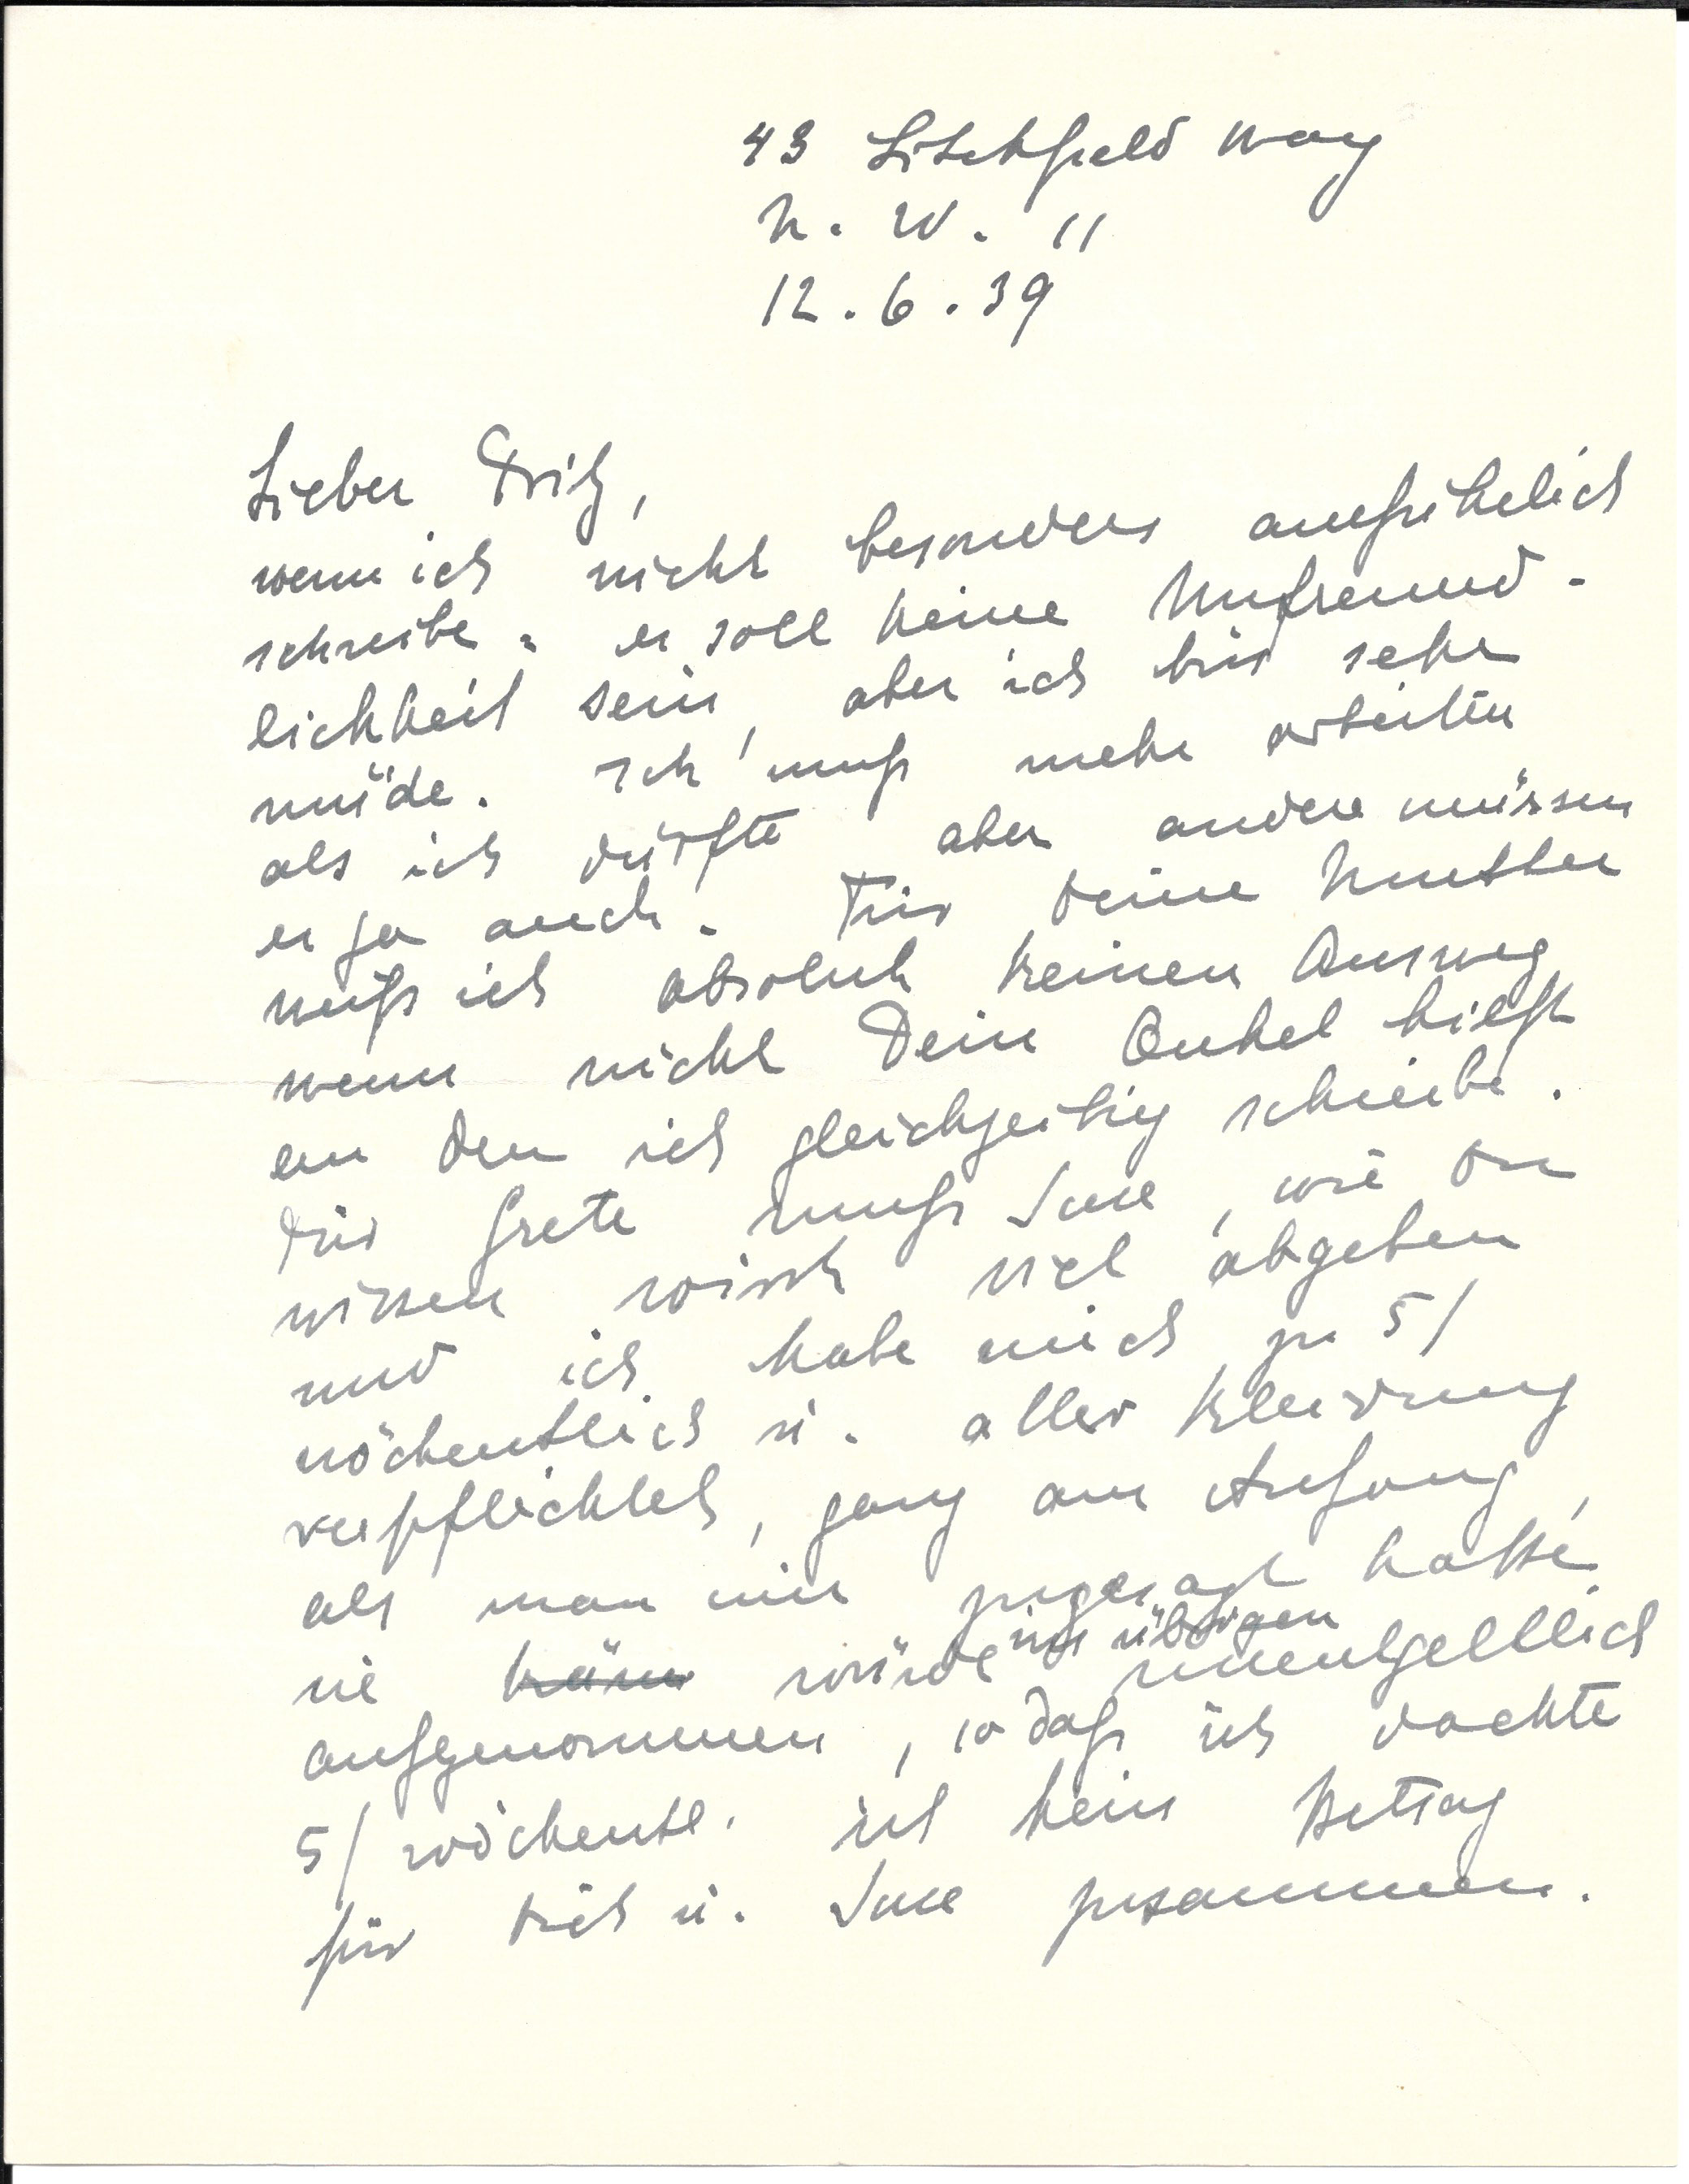 43 Litchfield Way
N. W. 11
12.6.39
Lieber Fritz,
wenn ich nicht besonders ausführlich
schreibe: es soll keine Unfreund-
lichkeit sein, aber ich bin sehr
müde. Ich muß mehr arbeiten
als ich dürfte, aber andere müssen
es ja auch. Für Deine Mutter
weiß ich absolut keinen Ausweg
wenn nicht Dein Onkel hilft
an den ich gleichzeitig schreibe.
Für Grete muß Suse, wie Du
wissen wirst viel abgeben
und ich habe mich zu 5/
wöchentlich u. aller Kleidung
verpflichtet, ganz am Anfang,
als man mir zugesagt hatte
sie käm würde im übrigen unentgeltlich
aufgenommen, so daß ich dachte
5/ wöchentl. ist kein Betrag
für Dich u. Suse zusammen.